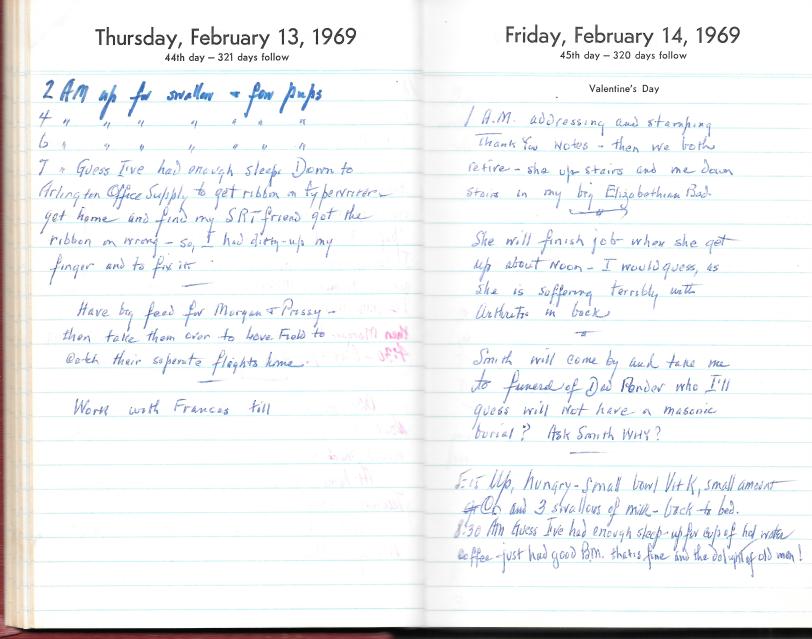 Thursday, February 13, 1969
44th day — 321 days follow
2 AM up for swallow & few pups
4 " " " " " " "
6 " " " " " " "
7 " Guess I've had enough sleep. Down to
Arlington Office Supply to get ribbon on typewriter
get home and find my SRT friend got the
ribbon on wrong - so, I had dirty-up my
finger and to fix it
Have big feed for Morgan & Prossy -
then take them over to Love Field to
catch their seperate flights home
Work with Frances till
Friday, February 14, 1969
45th day — 320 days follow
Valentine's Day
1 A.M. addressing and stamping
Thank You Notes - then we both
retire - she up stairs and me down
stairs in my big Elizabethian Bed.
She will finish job when she get
up about Noon - I would guess, as
she is suffering terribly with
in back
Smith will come by and take me
to funeral of Dad Ponder who I'll
guess will not have a masonic
burial? Ask Smith WHY?
5:15 Up, hungry - small bowl Vit K, small amount
and 3 swallows of milk - back to bed.
8:30 AM Guess I've had enough sleep - up for cup of hot water
coffee - just had good B.M. thats fine and the of old men!